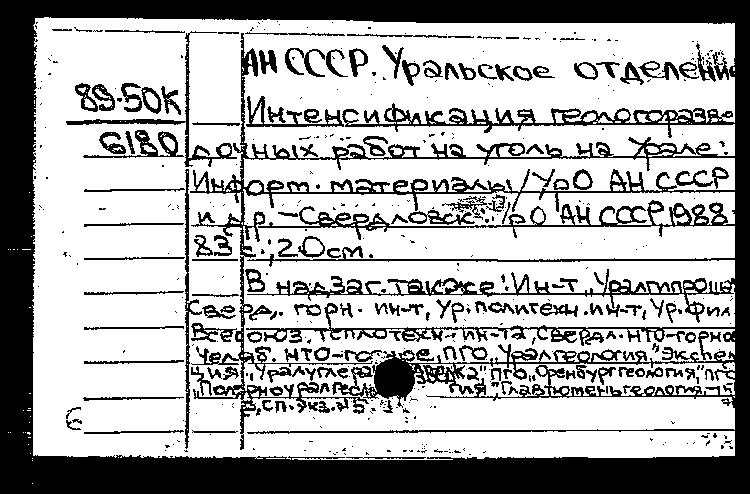 АН СССР. Уральское отделени
89-50К
Интенсификация геологоразве
6180
дочных работ на уголь на Урале:
Информ. материалы / УрО АН СССР
и др. - Свердловск: УрО АН СССР, 1988
83 с.; 20 см.
В надзаг. также: Ин-т „Уралгипрош
Сверд. горн. ин-т, Ур. политехн. ин-т, Ур. фил.
Всесоюз. теплотехн. ин-та, Свердл. НТО-горное
Челяб. НТО-горное, ПГО „Уралгеология,"
ция „Уралуглера ПГО „Оренбурггеология,"
„Полярноуралгеол гия" „Главтюменьгеология
Б, сп. экз. н5.
6